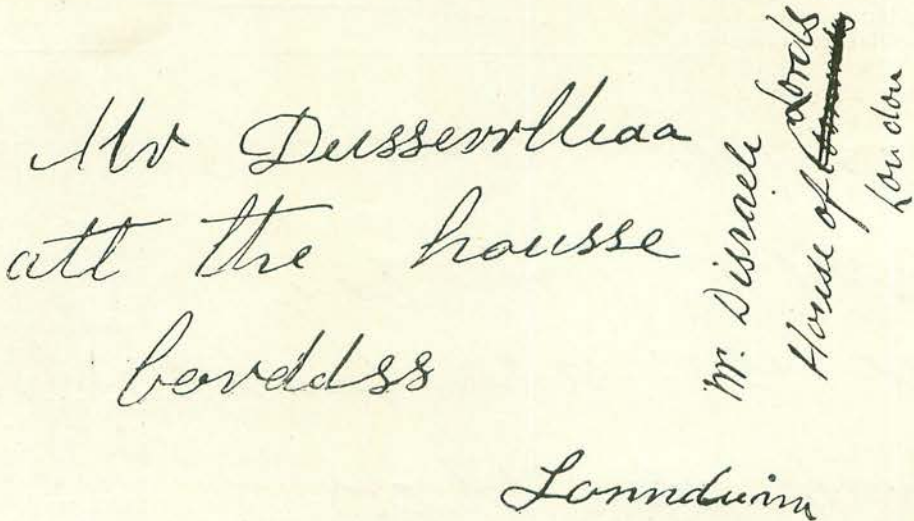 Mr Dusserrlleaa
att the housse
lorddss
Lonnduinn
Mr. Disraeli
House of Lords
London